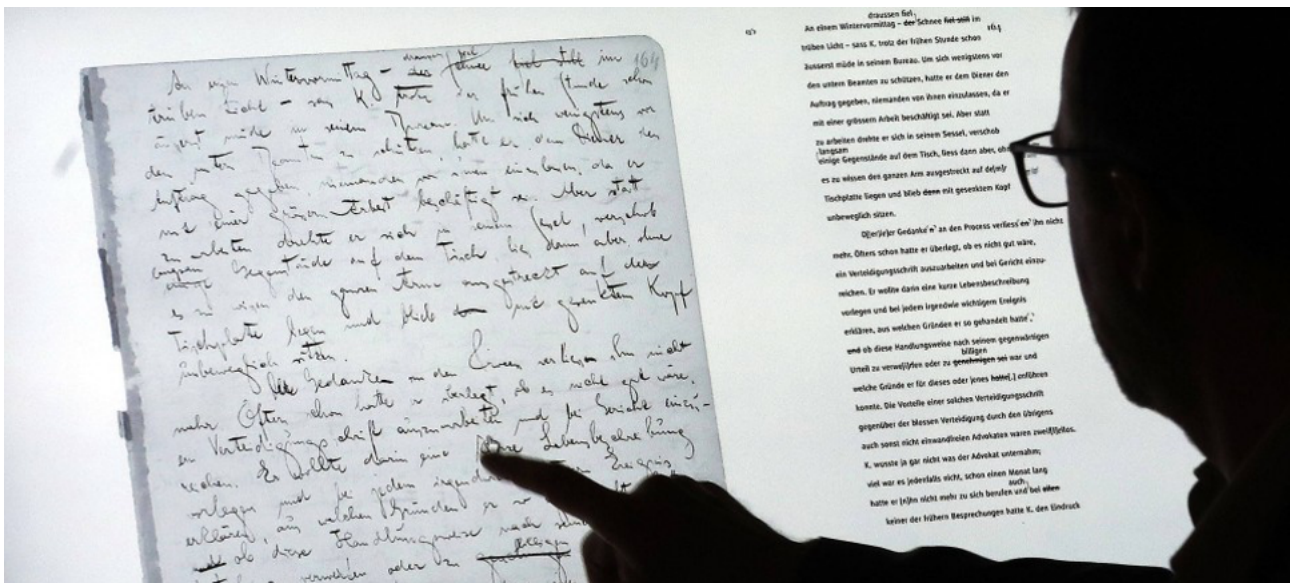 draussen fiel
An einem Wintervormittag – der Schnee fiel still im 164
trüben Licht – sass K. trotz der frühen Stunde schon
äusserst müde in seinem Bureau. Um sich wenigstens vor
den untern Beamten zu schützen, hatte er dem Diener den
Auftrag gegeben, niemanden von ihnen einzulassen, da er
mit einer grössern Arbeit beschäftigt sei. Aber statt
zu arbeiten drehte er sich in seinem Sessel, verschob
langsam
einige Gegenstände auf dem Tisch, liess dann aber, ohne
es zu wissen den ganzen Arm ausgestreckt auf der
Tischplatte liegen und blieb dann mit gesenktem Kopf
unbeweglich sitzen.
Der Gedanke an den Process verliess ihn nicht
mehr. Öfters schon hatte er überlegt, ob es nicht gut wäre,
ein Verteidigungsschrift auszuarbeiten und bei Gericht einzu-
reichen. Er wollte darin eine kurze Lebensbeschreibung
vorlegen und bei jedem irgendwie wichtigern Ereignis
erklären, aus welchen Gründen er so
und ob diese Handlungsweise nach seinem
billigen
verwerfen oder zu genehmigen
draussen fiel
An einem Wintervormittag – der Schnee fiel still im
164
trüben Licht – sass K. trotz der frühen Stunde schon
äusserst müde in seinem Bureau. Um sich wenigstens vor
den untern Beamten zu schützen, hatte er dem Diener den
Auftrag gegeben, niemanden von ihnen einzulassen, da er
mit einer grössern Arbeit beschäftigt sei. Aber statt
zu arbeiten drehte er sich in seinem Sessel, verschob
langsam
einige Gegenstände auf dem Tisch, liess dann aber, oh
es zu wissen den ganzen Arm ausgestreckt auf de[m]r
Tischplatte liegen und blieb dann mit gesenktem Kopf
unbeweglich sitzen.
D[er]ie]er Gedanke'n' an den Process verliess'en' ihn nicht
mehr. Öfters schon hatte er überlegt, ob es nicht gut wäre,
ein Verteidigungsschrift auszuarbeiten und bei Gericht einzu-
reichen. Er wollte darin eine kurze Lebensbeschreibung
vorlegen und bei jedem irgendwie wichtigern Ereignis
erklären, aus welchen Gründen er so gehandelt hatte','
und ob diese Handlungsweise nach seinem gegenwärtigen
billigen
Urteil zu verwe[i]rfen oder zu genehmigen sei war und
welche Gründe er für dieses oder jenes hatte[.] anführen
konnte. Die Vorteile einer solchen Verteidigungsschrift
gegenüber der blossen Verteidigung durch den übrigens
auch sonst nicht einwandfreien Advokaten waren zweif[l]ellos.
K. wusste ja gar nicht was der Advokat unternahm;
viel war es jedenfalls nicht, schon einen Monat lang
auch
hatte er [n]ihn nicht mehr zu sich berufen und bei allen
keiner der frühern Besprechungen hatte K. den Eindruck